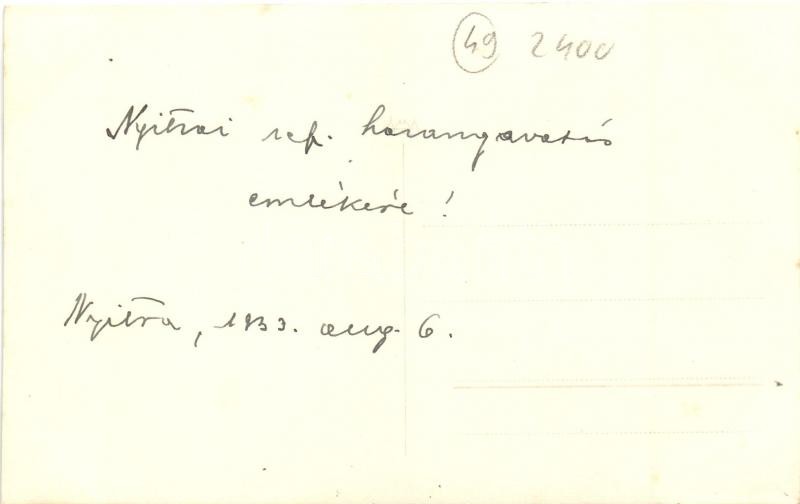 49 2400
Nyitrai ref. harangavatás
emlékére!
Nyitra, 1933. aug. 6.